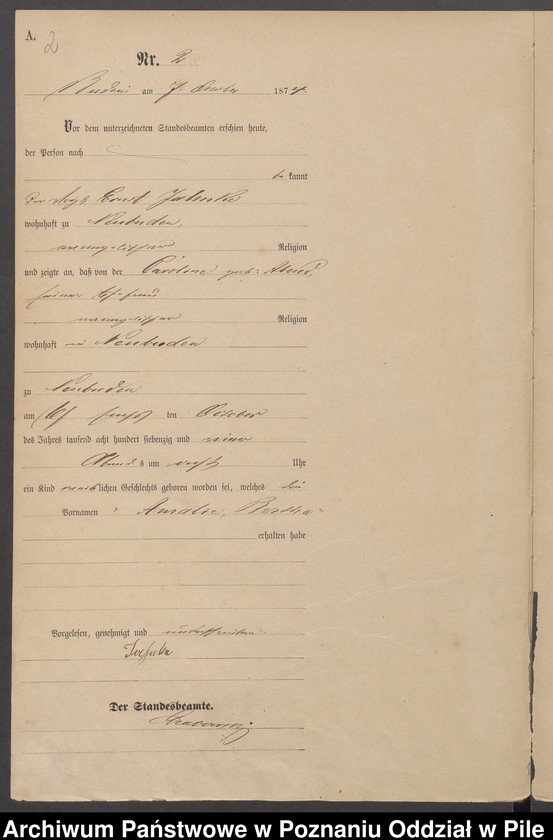 A.
2
Nr. 2
am 7 October 1874.
Vor dem unterzeichneten Standesbeamten erschien heute,
der Person nach
be kannt
Der Ernst Jahnke
wohnhaft zu Neubuden,
evangelischer Religion
und zeigte an, daß von der Caroline geb:
seiner Ehefrau
evangelischer Religion
wohnhaft in Neubuden
zu Neubuden
am ten October
des Jahres tausend acht hundert siebenzig und
Abends um Uhr
ein Kind weiblichen Geschlechts geboren worden sei, welches die
Vornamen Amalie, Bertha
erhalten habe
Vorgelesen, genehmigt und unterschrieben.
Jahnke
Der Standesbeamte.
Archiwum Państwowe w Poznaniu Oddział w Pile